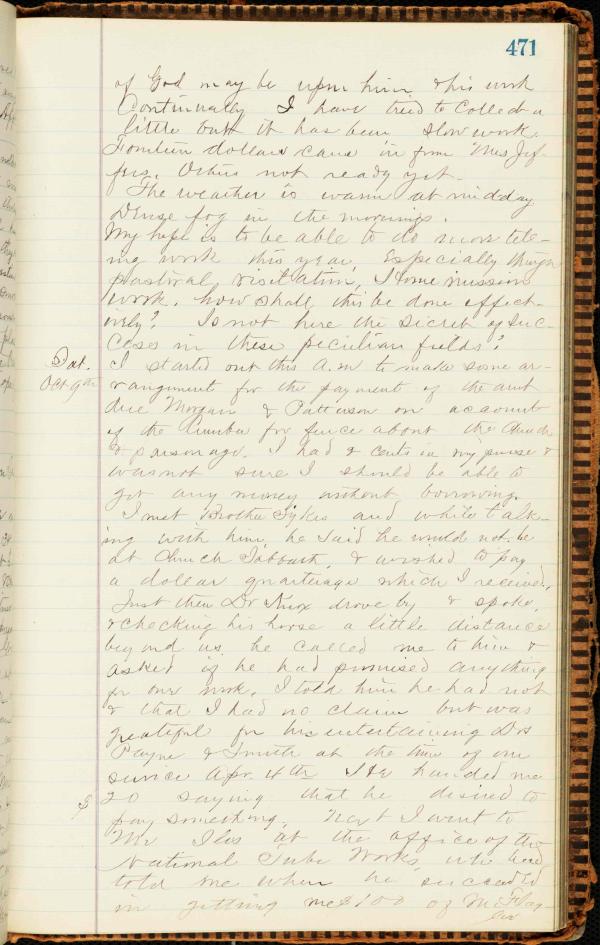 471
of God may be upon him & his work
Continually I have tried to Collect a
little but it has been slow work.
Fourteen dollars came in from Mrs Jef-
fris. Others not ready yet.
The weather is warm at midday
Dense fog in the mornings.
My hope is to be able to do more tell-
ing work this year, Especially through
pastoral visitation, & some mission
work. how shall this be done effect-
ively? Is not here the secret of suc-
cess in these peculiar fields?
Sat.
Oct 9th
I started out this A.M. to make some ar-
rangement for the payment of the amt
due Morgan & Patterson on account
of the lumber for fence about the Church
& parsonage. I had 2 cents in my purse &
was not sure I should be able to
get any money without borrowing.
I met Brother Sykes and while talk-
ing with him, he said he would not be
at Church Sabbath, & wished to pay
a dollar quarterage which I received.
Just then Dr Knox drove by & spoke,
& checking his horse a little distance
beyond us he called me to him &
asked if he had promised anything
for our work. I told him he had not
& that I had no claim but was
grateful for his entertaining Drs
Payne & Smith at the time of our
service Apr. 4th & He handed me
$
20 saying that he desired to
pay something. Next I went to
Mr Iles at the office of the
National Tube Works, who had
told me when he succeeded
in getting me $100 of Mr Flag-
ler